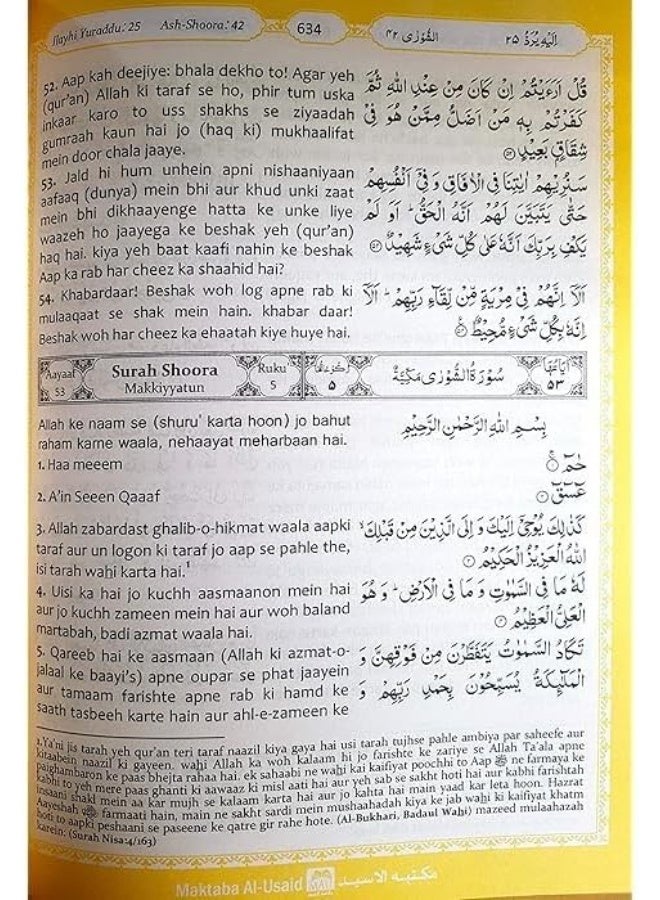 Ilayhi Yuraddu: 25 Ash-Shoora: 42 634 الشورى ٤٢ اليه يرد ٢٥
52. Aap kah deejiye: bhala dekho to! Agar yeh
(qur'an) Allah ki taraf se ho, phir tum uska
inkaar karo to uss shakhs se ziyaadah
gumraah kaun hai jo (haq ki) mukhaalifat
mein door chala jaaye.
53. Jald hi hum unhein apni nishaaniyaan
aafaaq (dunya) mein bhi aur khud unki zaat
mein bhi dikhaayenge hatta ke unke liye
waazeh ho jaayega ke beshak yeh (qur'an)
haq hai. kiya yeh baat kaafi nahin ke beshak
Aap ka rab har cheez ka shaahid hai?
54. Khabardaar! Beshak woh log apne rab ki
mulaaqaat se shak mein hain. khabar daar!
Beshak woh har cheez ka ehaatah kiye huye hai.
قُلْ اَرَءَيْتُمْ اِنْ كَانَ مِنْ عِنْدِ اللّٰهِ ثُمَّ
كَفَرْتُمْ بِهٖ مَنْ اَضَلُّ مِمَّنْ هُوَ فِيْ
شِقَاقٍۭ بَعِيْدٍ ٥٢
سَنُرِيْهِمْ اٰيٰتِنَا فِي الْاٰفَاقِ وَفِيْٓ اَنْفُسِهِمْ
حَتّٰى يَتَبَيَّنَ لَهُمْ اَنَّهُ الْحَقُّ ؕ اَوَ لَمْ
يَكْفِ بِرَبِّكَ اَنَّهٗ عَلٰى كُلِّ شَيْءٍ شَهِيْدٌ ٥٣
اَلَآ اِنَّهُمْ فِيْ مِرْيَةٍ مِّنْ لِّقَآءِ رَبِّهِمْ ؕ اَلَآ
اِنَّهٗ بِكُلِّ شَيْءٍ مُّحِيْطٌ ٥٤
Aayaaf 53 Surah Shoora Makkiyyatun Ruku 5 ركوعاتها ٥ سُوْرَةُ الشُّوْرٰى مَكِّيَّةٌ اٰيَاتُهَا ٥٣
Allah ke naam se (shuru' karta hoon) jo bahut
raham karne waala, nehaayat meharbaan hai.
1. Haa meeem
2. A'in Seeen Qaaaf
3. Allah zabardast ghalib-o-hikmat waala aapki
taraf aur un logon ki taraf jo aap se pahle the,
isi tarah wahi karta hai.¹
4. Uisi ka hai jo kuchh aasmaanon mein hai
aur jo kuchh zameen mein hai aur woh baland
martabah, badi azmat waala hai.
5. Qareeb hai ke aasmaan (Allah ki azmat-o-
jalaal ke baayi's) apne oupar se phat jaayein
aur tamaam farishte apne rab ki hamd ke
saath tasbeeh karte hain aur ahl-e-zameen ke
بِسْمِ اللّٰهِ الرَّحْمٰنِ الرَّحِيْمِ
حٰمٓ ١
عٓسٓقٓ ٢
كَذٰلِكَ يُوْحِيْٓ اِلَيْكَ وَ اِلَى الَّذِيْنَ مِنْ قَبْلِكَ ۙ
اللّٰهُ الْعَزِيْزُ الْحَكِيْمُ ٣
لَهٗ مَا فِي السَّمٰوٰتِ وَ مَا فِي الْاَرْضِ ؕ وَ هُوَ
الْعَلِيُّ الْعَظِيْمُ ٤
تَكَادُ السَّمٰوٰتُ يَتَفَطَّرْنَ مِنْ فَوْقِهِنَّ وَ
الْمَلٰٓئِكَةُ يُسَبِّحُوْنَ بِحَمْدِ رَبِّهِمْ وَ
1. Ya'ni jis tarah yeh qur'an teri taraf naazil kiya gaya hai usi tarah tujhse pahle ambiya par saheefe aur
kitaabein naazil ki gayeen. wahi Allah ka woh kalaam hai jo farishte ke zariye se Allah Ta'ala apne
paighambaron ke paas bhejta rahaa hai. ek sahaabi ne wahi kai kaifiyat poochhi to Aap ﷺ ne farmaya ke
kabhi to yeh mere paas ghanti ki aawaaz ki misl aati hai aur yeh sab se sakht hoti hai aur kabhi farishtah
insaani shakl mein aa kar mujh se kalaam karta hai aur jo kahta hai main yaad kar leta hoon. Hazrat
Aayeshah farmaati hain, main ne sakht sardi mein mushaahadah kiya ke jab wahi ki kaifiyat khatm
hoti to aapki peshaani se paseene ke qatre gir rahe hote. (Al-Bukhari, Badaul Wahi) mazeed mulaahazah
karein: (Surah Nisa:4/163)
Maktaba Al-Usaid مكتبه الاسيد